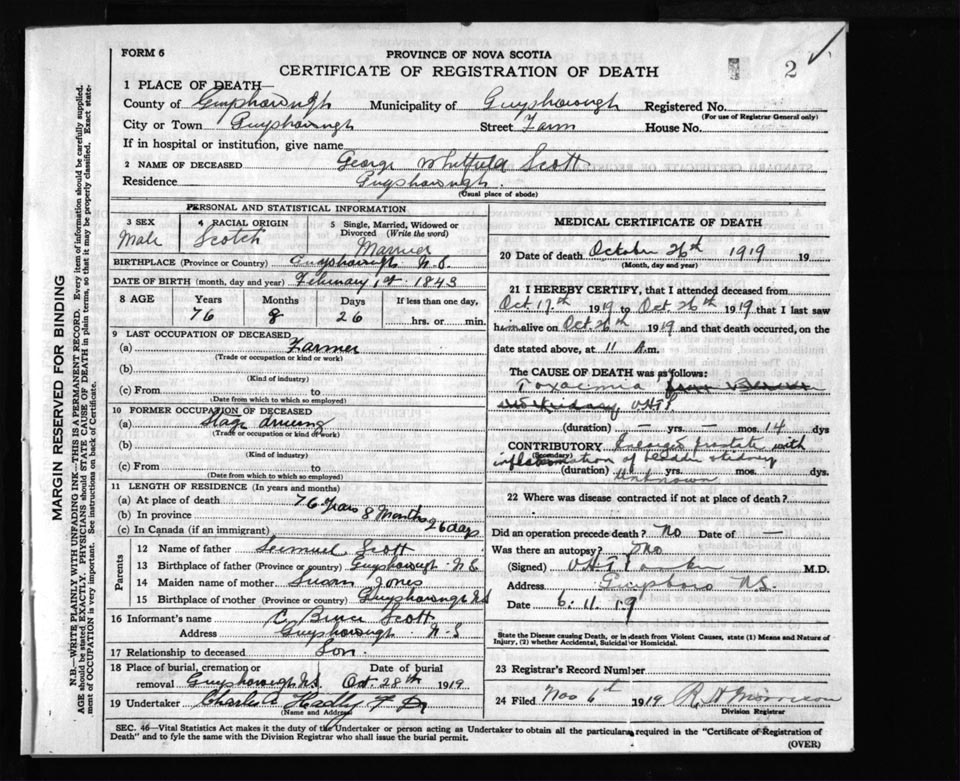 FORM 6
PROVINCE OF NOVA SCOTIA
CERTIFICATE OF REGISTRATION OF DEATH
2
1 PLACE OF DEATH—
County of Guysborough Municipality of Guysborough Registered No.
(For use of Registrar General only)
City or Town Guysborough Street Farm House No.
If in hospital or institution, give name
2 NAME OF DECEASED George Whitfield Scott
Residence Guysborough.
(Usual place of abode)
PERSONAL AND STATISTICAL INFORMATION
3 SEX Male
4 RACIAL ORIGIN Scotch
5 Single, Married, Widowed or Divorced (Write the word) Married
BIRTHPLACE (Province or Country) Guysborough N.S.
DATE OF BIRTH (month, day and year) February 1st 1843
8 AGE Years Months Days If less than one day,
76 8 26 hrs. or min.
9 LAST OCCUPATION OF DECEASED
(a) Farmer
(Trade or occupation or kind of work)
(b)
(Kind of industry)
(c) From to
(Date from which to which so employed)
10 FORMER OCCUPATION OF DECEASED
(a) Stage driving
(Trade or occupation or kind of work)
(b)
(Kind of industry)
(c) From to
(Date from which to which so employed)
11 LENGTH OF RESIDENCE (In years and months)
(a) At place of death 76 Years 8 Months 26 days
(b) In province
(c) In Canada (if an immigrant)
Parents
12 Name of father Scott
13 Birthplace of father (Province or country) Guysborough N.S.
14 Maiden name of mother Susan Jones
15 Birthplace of mother (Province or country) Guysborough N.S
16 Informant's name C. Bruce Scott
Address Guysborough N.S
17 Relationship to deceased Son.
18 Place of burial, cremation or removal Guysborough N.S. Date of burial Oct. 28th 1919
19 Undertaker Charles A Hadley
(Name and Address)
MEDICAL CERTIFICATE OF DEATH
20 Date of death October 26th 1919 19
(Month, day and year)
21 I HEREBY CERTIFY, that I attended deceased from
Oct 17th 1919 to Oct 26th 1919 that I last saw
him alive on Oct 26th 1919 and that death occurred, on the
date stated above, at 11 A.m.
The CAUSE OF DEATH was as follows:
Toxaemia
(duration) — yrs. — mos. 14 dys
CONTRIBUTORY Enlarged prostate with
(Secondary)
of
(duration) yrs. mos. dys.
Unknown
22 Where was disease contracted if not at place of death?
Did an operation precede death? No Date of —
Was there an autopsy? No
(Signed) M.D.
Address Guysboro N.S.
Date 6. 11. 19
State the Disease causing Death, or in death from Violent Causes, state (1) Means and Nature of
Injury, (2) whether Accidental, Suicidal or Homicidal.
23 Registrar's Record Number
24 Filed Nov 6th 1919
Division Registrar
SEC. 46—Vital Statistics Act makes it the duty of the Undertaker or person acting as Undertaker to obtain all the particulars required in the "Certificate of Registration of
Death" and to fyle the same with the Division Registrar who shall issue the burial permit.
(OVER)
MARGIN RESERVED FOR BINDING
N.B.—WRITE PLAINLY WITH UNFADING INK—THIS IS A PERMANENT RECORD. Every item of information should be carefully supplied.
AGE should be stated EXACTLY. PHYSICIANS should STATE CAUSE OF DEATH in plain terms, so that it may be properly classified. Exact state-
ment of OCCUPATION is very important. See instructions on back of Certificate.